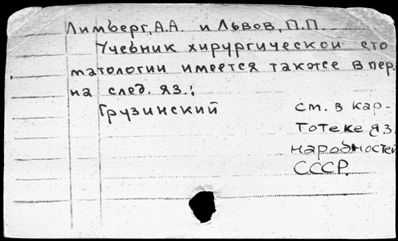 Лимберг, А.А. и Львов, П.П.
Учебник хирургической сто
матологии имеется также в пер.
на след. яз.:
Грузинский
см. в кар-
тотеке яз.
народностей
СССР.